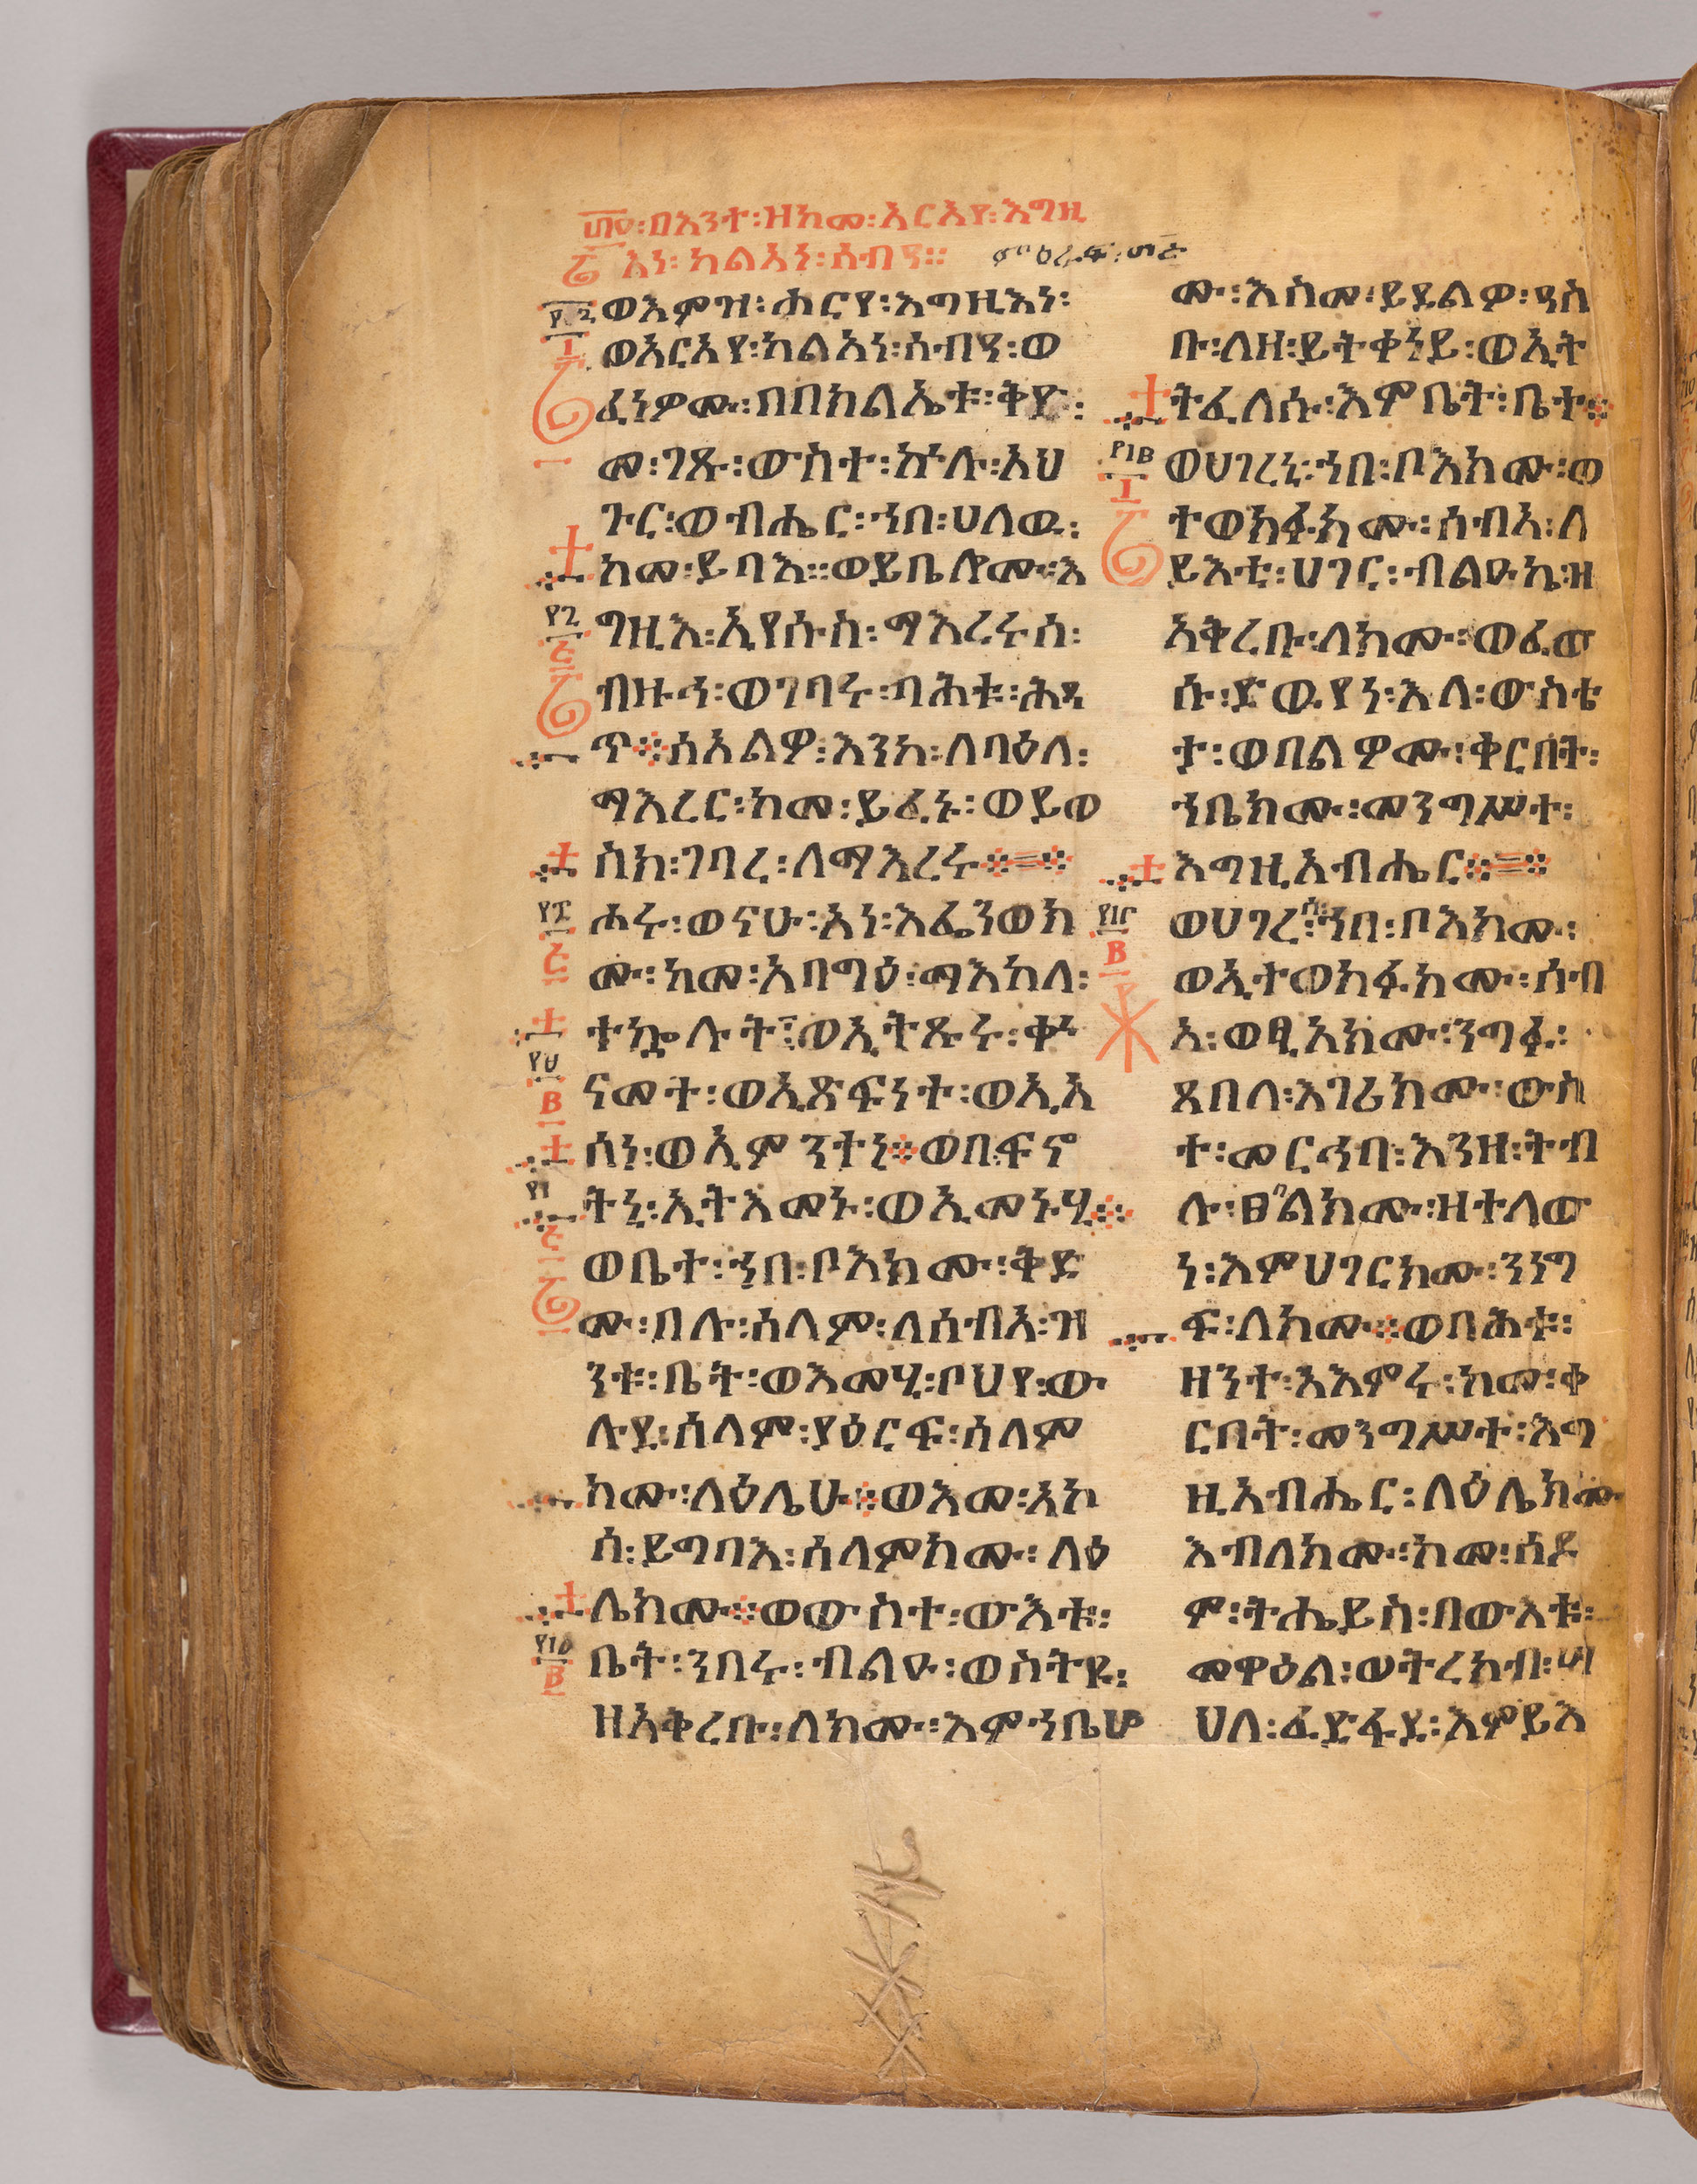 በእንተ፡ዘከመ፡አርአየ፡እግዚ
እነ፡ካልኣነ፡ሰብዓ።
ምዕራፍ፡
ወእምዝ፡ሐርየ፡እግዚእነ፡
ወአርአየ፡ካልአነ፡ሰብዓ፡ወ
ፈነዎሙ፡በበክልኤቱ፡ቅድ፡
መ፡ገጹ፡ውስተ፡ኵሉ፡አህ
ጉር፡ወብሔር፡ኀበ፡ሀለወ፡
ከመ፡ይባእ።ወይቤሎሙ፡እ
ግዚእ፡ኢየሱስ፡ማእረሩሰ፡
ብዙኅ፡ወገባሩ፡ባሕቱ፡ሕዳ
ጥ፨ሰአልዎ፡እንከ፡ለባዕለ፡
ማእረር፡ከመ፡ይፈኑ፡ወይወ
ስክ፡ገባረ፡ለማእረሩ፨=፨
ሐሩ፡ወናሁ፡አነ፡እፌንወክ
ሙ፡ከመ፡አባግዕ፡ማእከለ፡
ተኲሉት፡ወኢትጹሩ፡ቍ
ናመት፡ወኢጽፍነት፡ወኢአ
ሰነ፡ወኢምንተኒ፨ወበፍኖ
ትኒ፡ኢትእመኑ፡ወኢመኑሂ፨
ወቤተ፡ኀበ፡ቦእክሙ፡ቅድ
ሙ፡በሉ፡ሰላም፡ለሰብአ፡ዝ
ንቱ፡ቤት፡ወእመሂ፡ቦህየ፡ው
ሉደ፡ሰላም፡ያዕርፍ፡ሰላም
ክሙ፡ለዕሌሁ፨ወእመ፡አኮ
ሰ፡ይግባእ፡ሰላምክሙ፡ለዕ
ሌክሙ፨ወውስተ፡ውእቱ፡
ቤት፡ንበሩ፡ብልዑ፡ወስትዩ፡
ዘአቅረቡ፡ለክሙ፡እምኀቤሆ
ሙ፡እስመ፡ይደልዎ፡ዓስ
ቡ፡ለዘ፡ይትቀነይ፡ወኢት
ትፈለሱ፡እምቤት፡ቤተ፨
ወሀገረኒ፡ኀበ፡ቦእክሙ፡ወ
ተወክፉክሙ፡ሰብአ፡ለ
ይእቲ፡ሀገር፡ብልዑ፡ኬ፡ዝ
አቅረቡ፡ለክሙ፡ወፈው
ሱ፡ድወየነ፡እለ፡ውስቴ
ታ፡ወበልዎሙ፡ቅርበት፡
ኀቤክሙ፡መንግሥተ፡
እግዚአብሔር፨=፨
ወሀገረሰ፡ኀበ፡ቦእክሙ፡
ወኢተወክፉክሙ፡ሰብ
አ፡ወፂአክሙ፡ንግፉ፡
ጸበለ፡እገሪክሙ፡ውስ
ተ፡መርኅባ፡እንዘ፡ትብ
ሉ፡ፀበልክሙ፡ዘተለው
ነ፡እምሀገርክሙ፡ንነግ
ፍ፡ለክሙ፨ወባሕቱ፡
ዘንተ፡አእምሩ፡ከመ፡ቀ
ርበት፡መንግሥተ፡እግ
ዚአብሔር፡ለዕሌክሙ
እብለክሙ፡ከመ፡ሰዶ
ም፡ትሔይስ፡በውእቱ፡
መዋዕል፡ወትረክብ፡ሣ
ህለ፡ፈድፋደ፡እምይእ